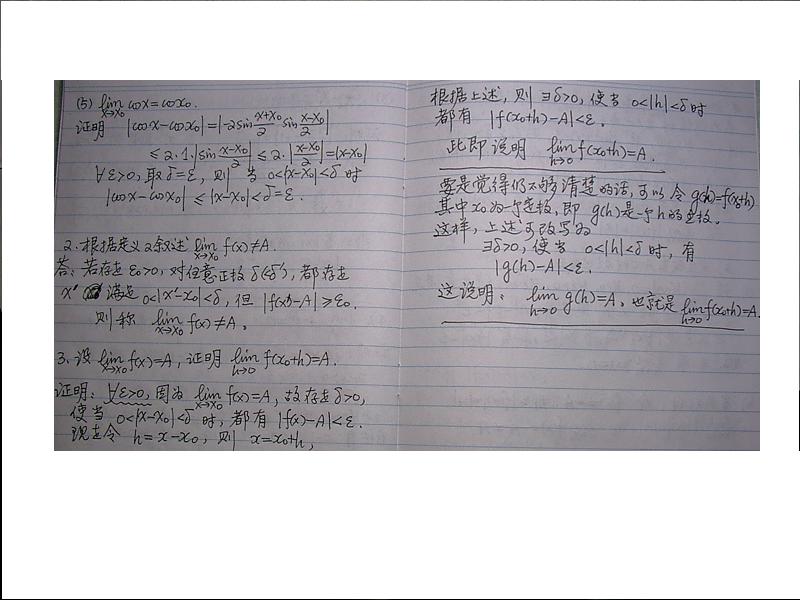 (5) lim x→x₀ cosx=cosx₀.
证明 |cosx-cosx₀|=|-2sin (x+x₀)/2 sin (x-x₀)/2|
≤2·1·|sin (x-x₀)/2|≤2·|(x-x₀)/2|=|x-x₀|
∀ε>0, 取δ=ε, 则当 0<|x-x₀|<δ时
|cosx-cosx₀|≤|x-x₀|<δ=ε.
2. 根据定义2叙述 lim x→x₀ f(x)≠A.
答: 若存在ε₀>0, 对任意正数δ(<δ'), 都存在
x' 满足 0<|x'-x₀|<δ, 但 |f(x')-A|≥ε₀.
则称 lim x→x₀ f(x)≠A.
3. 设 lim x→x₀ f(x)=A, 证明 lim h→0 f(x₀+h)=A.
证明: ∀ε>0, 因为 lim x→x₀ f(x)=A, 故存在δ>0,
使当 0<|x-x₀|<δ时, 都有 |f(x)-A|<ε.
现在令 h=x-x₀, 则 x=x₀+h,
根据上述, 则 ∃δ>0, 使当 0<|h|<δ时
都有 |f(x₀+h)-A|<ε.
此即说明 lim h→0 f(x₀+h)=A.
要是觉得仍不够清楚的话, 可以令 g(h)=f(x₀+h)
其中x₀为一个定数, 即 g(h)是一个h的函数.
这样, 上述可改写为
∃δ>0, 使当 0<|h|<δ时, 有
|g(h)-A|<ε.
这说明: lim h→0 g(h)=A. 也就是 lim h→0 f(x₀+h)=A.